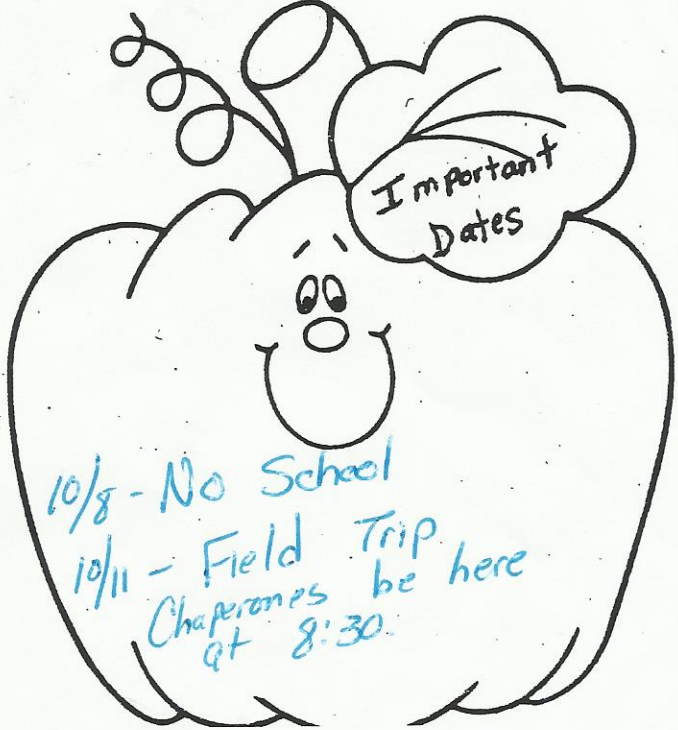 Important
Dates
10/8 - No School
10/11 - Field Trip
Chaperones be here
at 8:30.